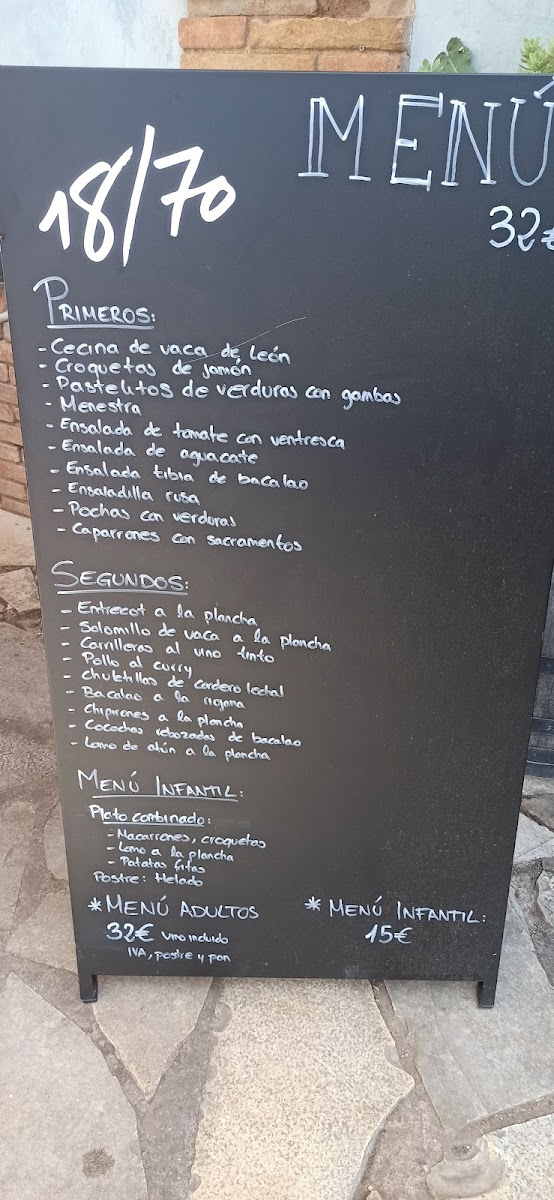 18/70
MENÚ
32€
PRIMEROS:
- Cecina de vaca de León
- Croquetas de jamón
- Pastelitos de verduras con gambas
- Menestra
- Ensalada de tomate con ventresca
- Ensalada de aguacate
- Ensalada tibia de bacalao
- Ensaladilla rusa
- Pochas con verduras
- Caparrones con sacramentos
SEGUNDOS:
- Entrecot a la plancha
- Solomillo de vaca a la plancha
- Carrilleras al vino tinto
- Pollo al curry
- Chuletillas de cordero lechal
- Bacalao a la riojana
- Chipirones a la plancha
- Cocochas rebozadas de bacalao
- Lomo de atún a la plancha
MENÚ INFANTIL:
Plato combinado:
- Macarrones, croquetas
- Lomo a la plancha
- Patatas fritas
Postre: Helado
* MENÚ ADULTOS
32€ vino incluido
IVA, postre y pan
* MENÚ INFANTIL:
15€